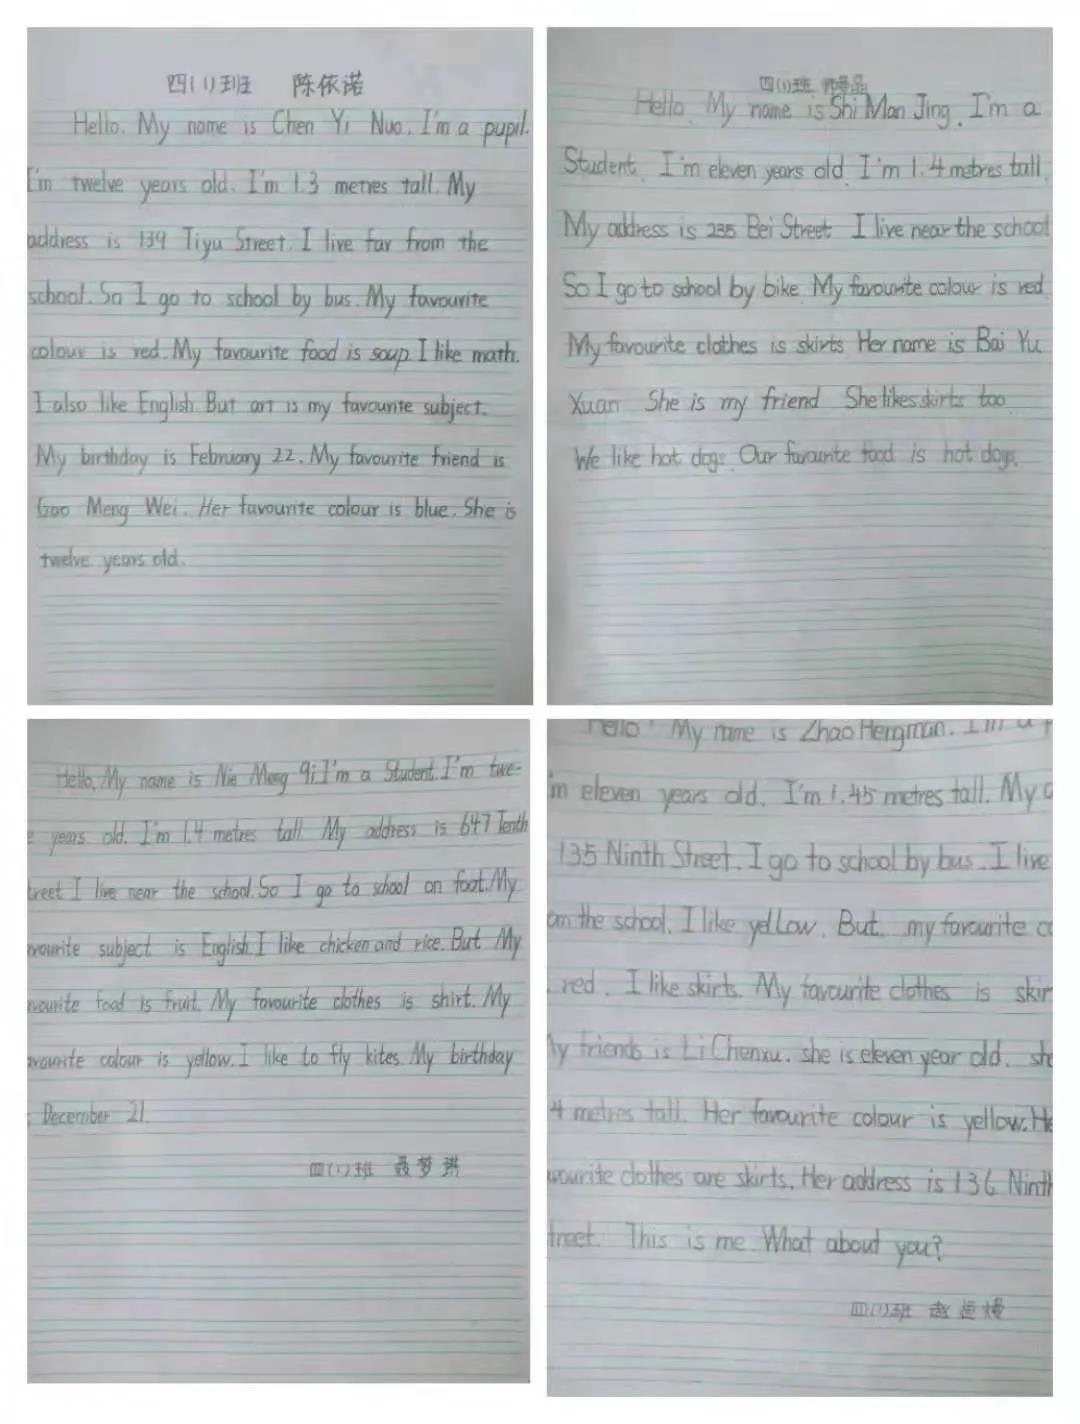 四(1)班 陈依诺
Hello. My name is Chen Yi Nuo. I'm a pupil.
I'm twelve years old. I'm 1.3 metres tall. My
address is 139 Tiyu Street. I live far from the
school. So I go to school by bus. My favourite
colour is red. My favourite food is soup. I like math.
I also like English. But art is my favourite subject.
My birthday is February 22. My favourite friend is
Gao Meng Wei. Her favourite colour is blue. She is
twelve years old.
四(1)班
Hello. My name is Shi Man Jing. I'm a
Student. I'm eleven years old. I'm 1.4 metres tall.
My address is 235 Bei Street I live near the school
So I go to school by bike. My favourite colour is red.
My favourite clothes is skirts Her name is Bai Yu
Xuan She is my friend She likes skirts too.
We like hot dogs. Our favourite food is hot dogs.
Hello, My name is Nie Meng Qi. I'm a Student. I'm twe-
years old. I'm 1.4 metres tall. My address is 647 Tenth
treet I live near the school. So I go to school on foot. My
vourite subject is English. I like chicken and rice. But My
vourite food is fruit. My favourite clothes is shirt. My
avourite colour is yellow. I like to fly kites. My birthday
December 21.
四(1)班 聂梦琪
Hello. My name is Zhao Hengman. I'm a
'm eleven years old. I'm 1.45 metres tall. My
135 Ninth Street. I go to school by bus. I live
om the school. I like yellow. But. my favourite co
red. I like skirts. My favourite clothes is skir
My friends is Li Chenxu. she is eleven year old. she
4 metres tall. Her favourite colour is yellow. He
vourite clothes are skirts. Her address is 136 Ninth
treet. This is me. What about you?
四(1)班 赵恒熳